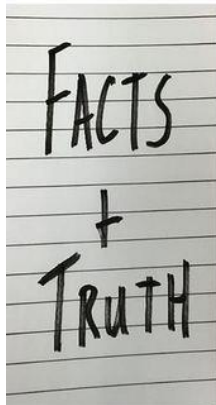 FACTS
+
TRUTH